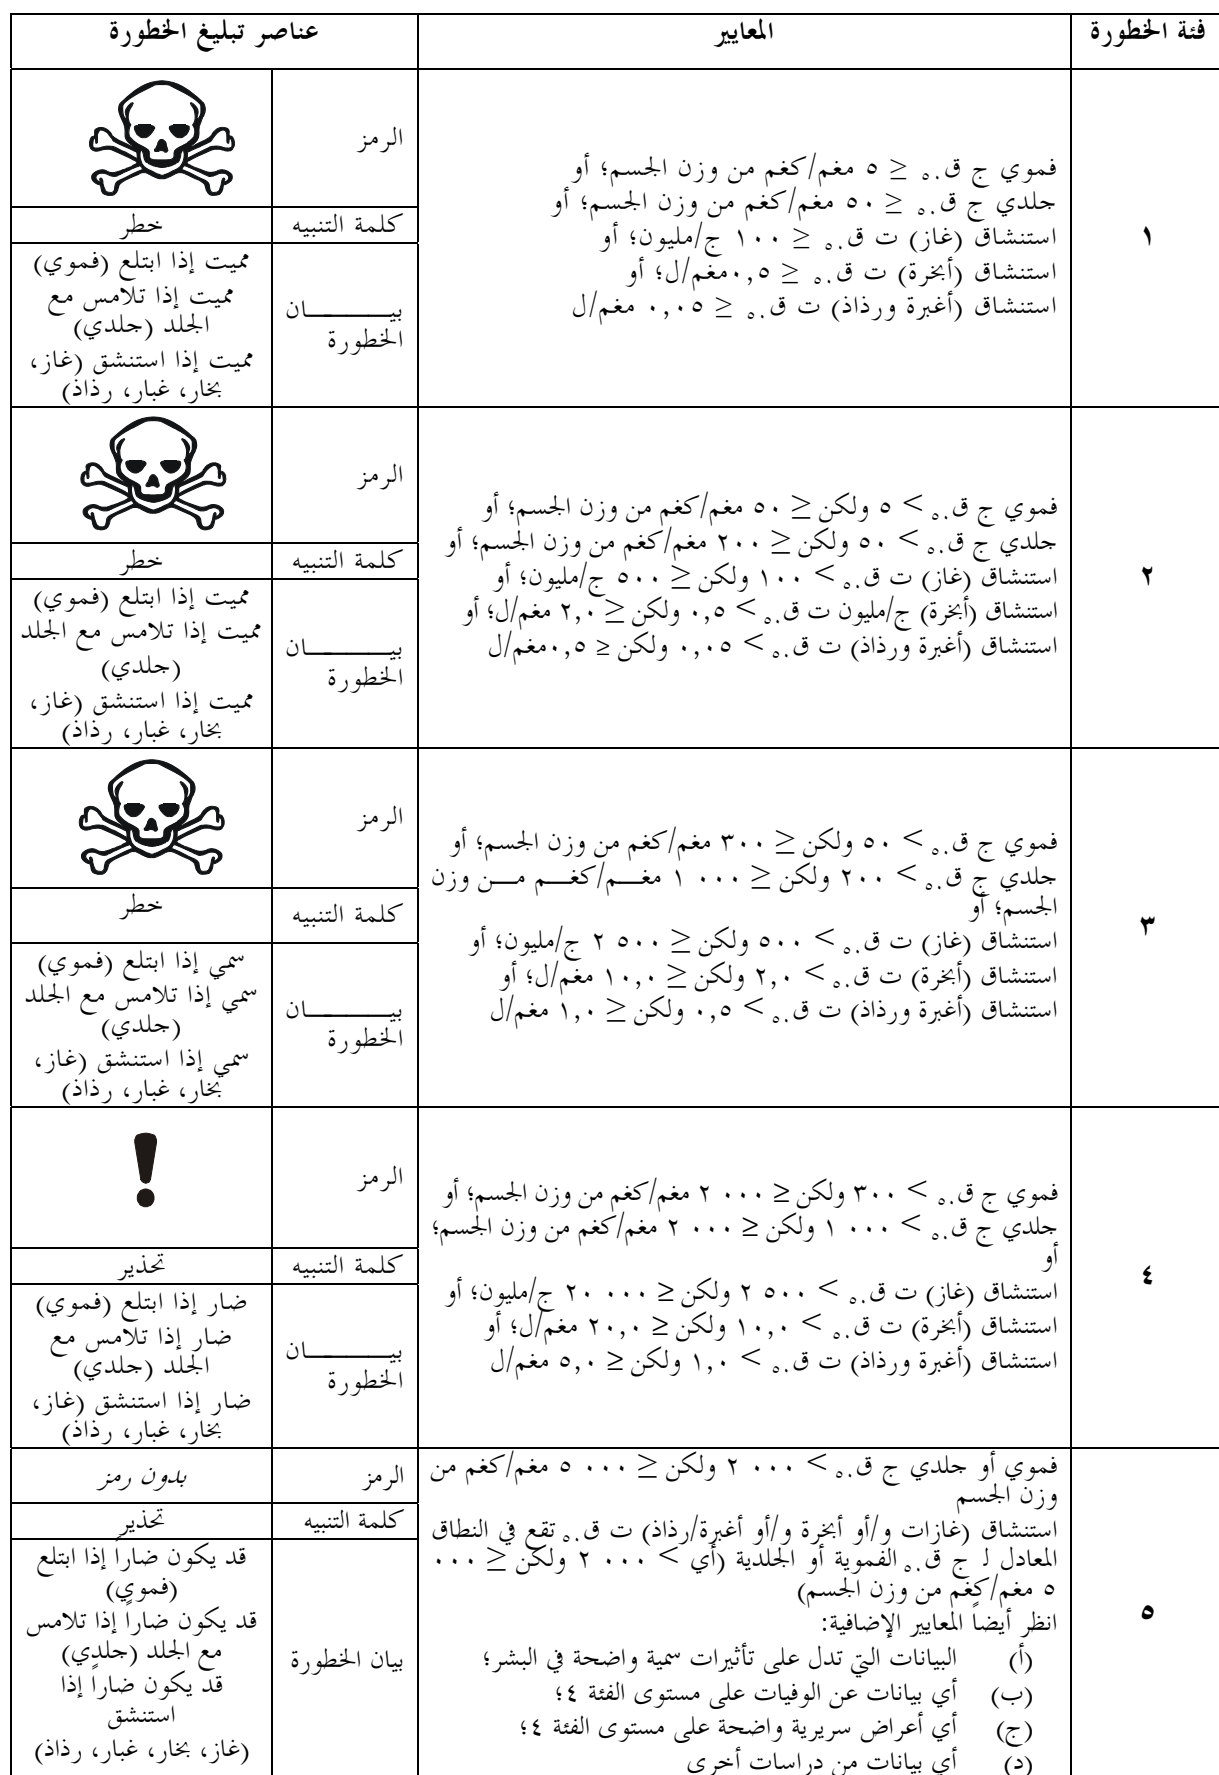 فئة الخطورة
المعايير
عناصر تبليغ الخطورة
١
فموي ج ق.٥ ≥ ٥ مغم/كغم من وزن الجسم؛ أو
جلدي ج ق.٥ ≥ ٥٠ مغم/كغم من وزن الجسم؛ أو
استنشاق (غاز) ت ق.٥ ≥ ١٠٠ ج/مليون؛ أو
استنشاق (أبخرة) ت ق.٥ ≥ ٠,٥مغم/ل؛ أو
استنشاق (أغبرة ورذاذ) ت ق.٥ ≥ ٠,٠٥ مغم/ل
الرمز
كلمة التنبيه
خطر
بيـــــــــــان
الخطورة
مميت إذا ابتلع (فموي)
مميت إذا تلامس مع
الجلد (جلدي)
مميت إذا استنشق (غاز،
بخار، غبار، رذاذ)
٢
فموي ج ق.٥ > ٥ ولكن ≥ ٥٠ مغم/كغم من وزن الجسم؛ أو
جلدي ج ق.٥ > ٥٠ ولكن ≥ ٢٠٠ مغم/كغم من وزن الجسم؛ أو
استنشاق (غاز) ت ق.٥ > ١٠٠ ولكن ≥ ٥٠٠ ج/مليون؛ أو
استنشاق (أبخرة) ج/مليون ت ق.٥ > ٠,٥ ولكن ≥ ٢,٠ مغم/ل؛ أو
استنشاق (أغبرة ورذاذ) ت ق.٥ > ٠,٠٥ ولكن ≥ ٠,٥مغم/ل
الرمز
كلمة التنبيه
خطر
بيـــــــــــان
الخطورة
مميت إذا ابتلع (فموي)
مميت إذا تلامس مع الجلد
(جلدي)
مميت إذا استنشق (غاز،
بخار، غبار، رذاذ)
٣
فموي ج ق.٥ > ٥٠ ولكن ≥ ٣٠٠ مغم/كغم من وزن الجسم؛ أو
جلدي ج ق.٥ > ٢٠٠ ولكن ≥ ٠٠٠ ١ مغـــم/كغـــم مـــن وزن
الجسم؛ أو
استنشاق (غاز) ت ق.٥ > ٥٠٠ ولكن ≥ ٥٠٠ ٢ ج/مليون؛ أو
استنشاق (أبخرة) ت ق.٥ > ٢,٠ ولكن ≥ ١٠,٠ مغم/ل؛ أو
استنشاق (أغبرة ورذاذ) ت ق.٥ > ٠,٥ ولكن ≥ ١,٠ مغم/ل
الرمز
كلمة التنبيه
خطر
بيـــــــــــان
الخطورة
سمي إذا ابتلع (فموي)
سمي إذا تلامس مع الجلد
(جلدي)
سمي إذا استنشق (غاز،
بخار، غبار، رذاذ)
٤
فموي ج ق.٥ > ٣٠٠ ولكن ≥ ٠٠٠ ٢ مغم/كغم من وزن الجسم؛ أو
جلدي ج ق.٥ > ٠٠٠ ١ ولكن ≥ ٠٠٠ ٢ مغم/كغم من وزن الجسم؛
أو
استنشاق (غاز) ت ق.٥ > ٥٠٠ ٢ ولكن ≥ ٠٠٠ ٢٠ ج/مليون؛ أو
استنشاق (أبخرة) ت ق.٥ > ١٠,٠ ولكن ≥ ٢٠,٠ مغم/ل؛ أو
استنشاق (أغبرة ورذاذ) ت ق.٥ > ١,٠ ولكن ≥ ٥,٠ مغم/ل
الرمز
!
كلمة التنبيه
تحذير
بيـــــــــــان
الخطورة
ضار إذا ابتلع (فموي)
ضار إذا تلامس مع
الجلد (جلدي)
ضار إذا استنشق (غاز،
بخار، غبار، رذاذ)
٥
فموي أو جلدي ج ق.٥ > ٠٠٠ ٢ ولكن ≥ ٠٠٠ ٥ مغم/كغم من
وزن الجسم
استنشاق (غازات و/أو أبخرة و/أو أغبرة/رذاذ) ت ق.٥ تقع في النطاق
المعادل لـ ج ق.٥ الفموية أو الجلدية (أي > ٠٠٠ ٢ ولكن ≥ ٠٠٠
٥ مغم/كغم من وزن الجسم)
انظر أيضاً المعايير الإضافية:
(أ) البيانات التي تدل على تأثيرات سمية واضحة في البشر؛
(ب) أي بيانات عن الوفيات على مستوى الفئة ٤؛
(ج) أي أعراض سريرية واضحة على مستوى الفئة ٤؛
(د) أي بيانات من دراسات أخرى
الرمز
بدون رمز
كلمة التنبيه
تحذير
بيان الخطورة
قد يكون ضاراً إذا ابتلع
(فموي)
قد يكون ضاراً إذا تلامس
مع الجلد (جلدي)
قد يكون ضاراً إذا
استنشق
(غاز، بخار، غبار، رذاذ)